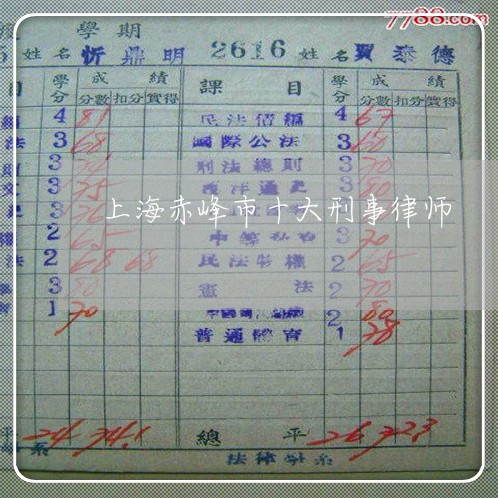 7788.com
學期
姓名 忻鼎明 2616 姓名 賈泰德
目 學分 成績 課目 學分 成績
分數 扣分 實得 分數 扣分 實得
4 81 民法債編 4 67
法 3 68 國際公法 3 60
3 刑法總則 3 70
3 75 西洋通史 3 70
上海赤峰市十大刑事律師
2 65 3 70
法 2 68 68 民法物權 2 65
3 80 憲法 2 70
1 70 2 80
普通體育 1 78
平 24 74.1 總平 26 72.3
系 法律學系